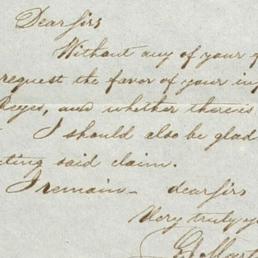 Dear sirs
Without any of your
request the favor of your in
Reyes, and whether there is
I should also be glad
ting said claim.
I remain - dear sirs
Very truly yo